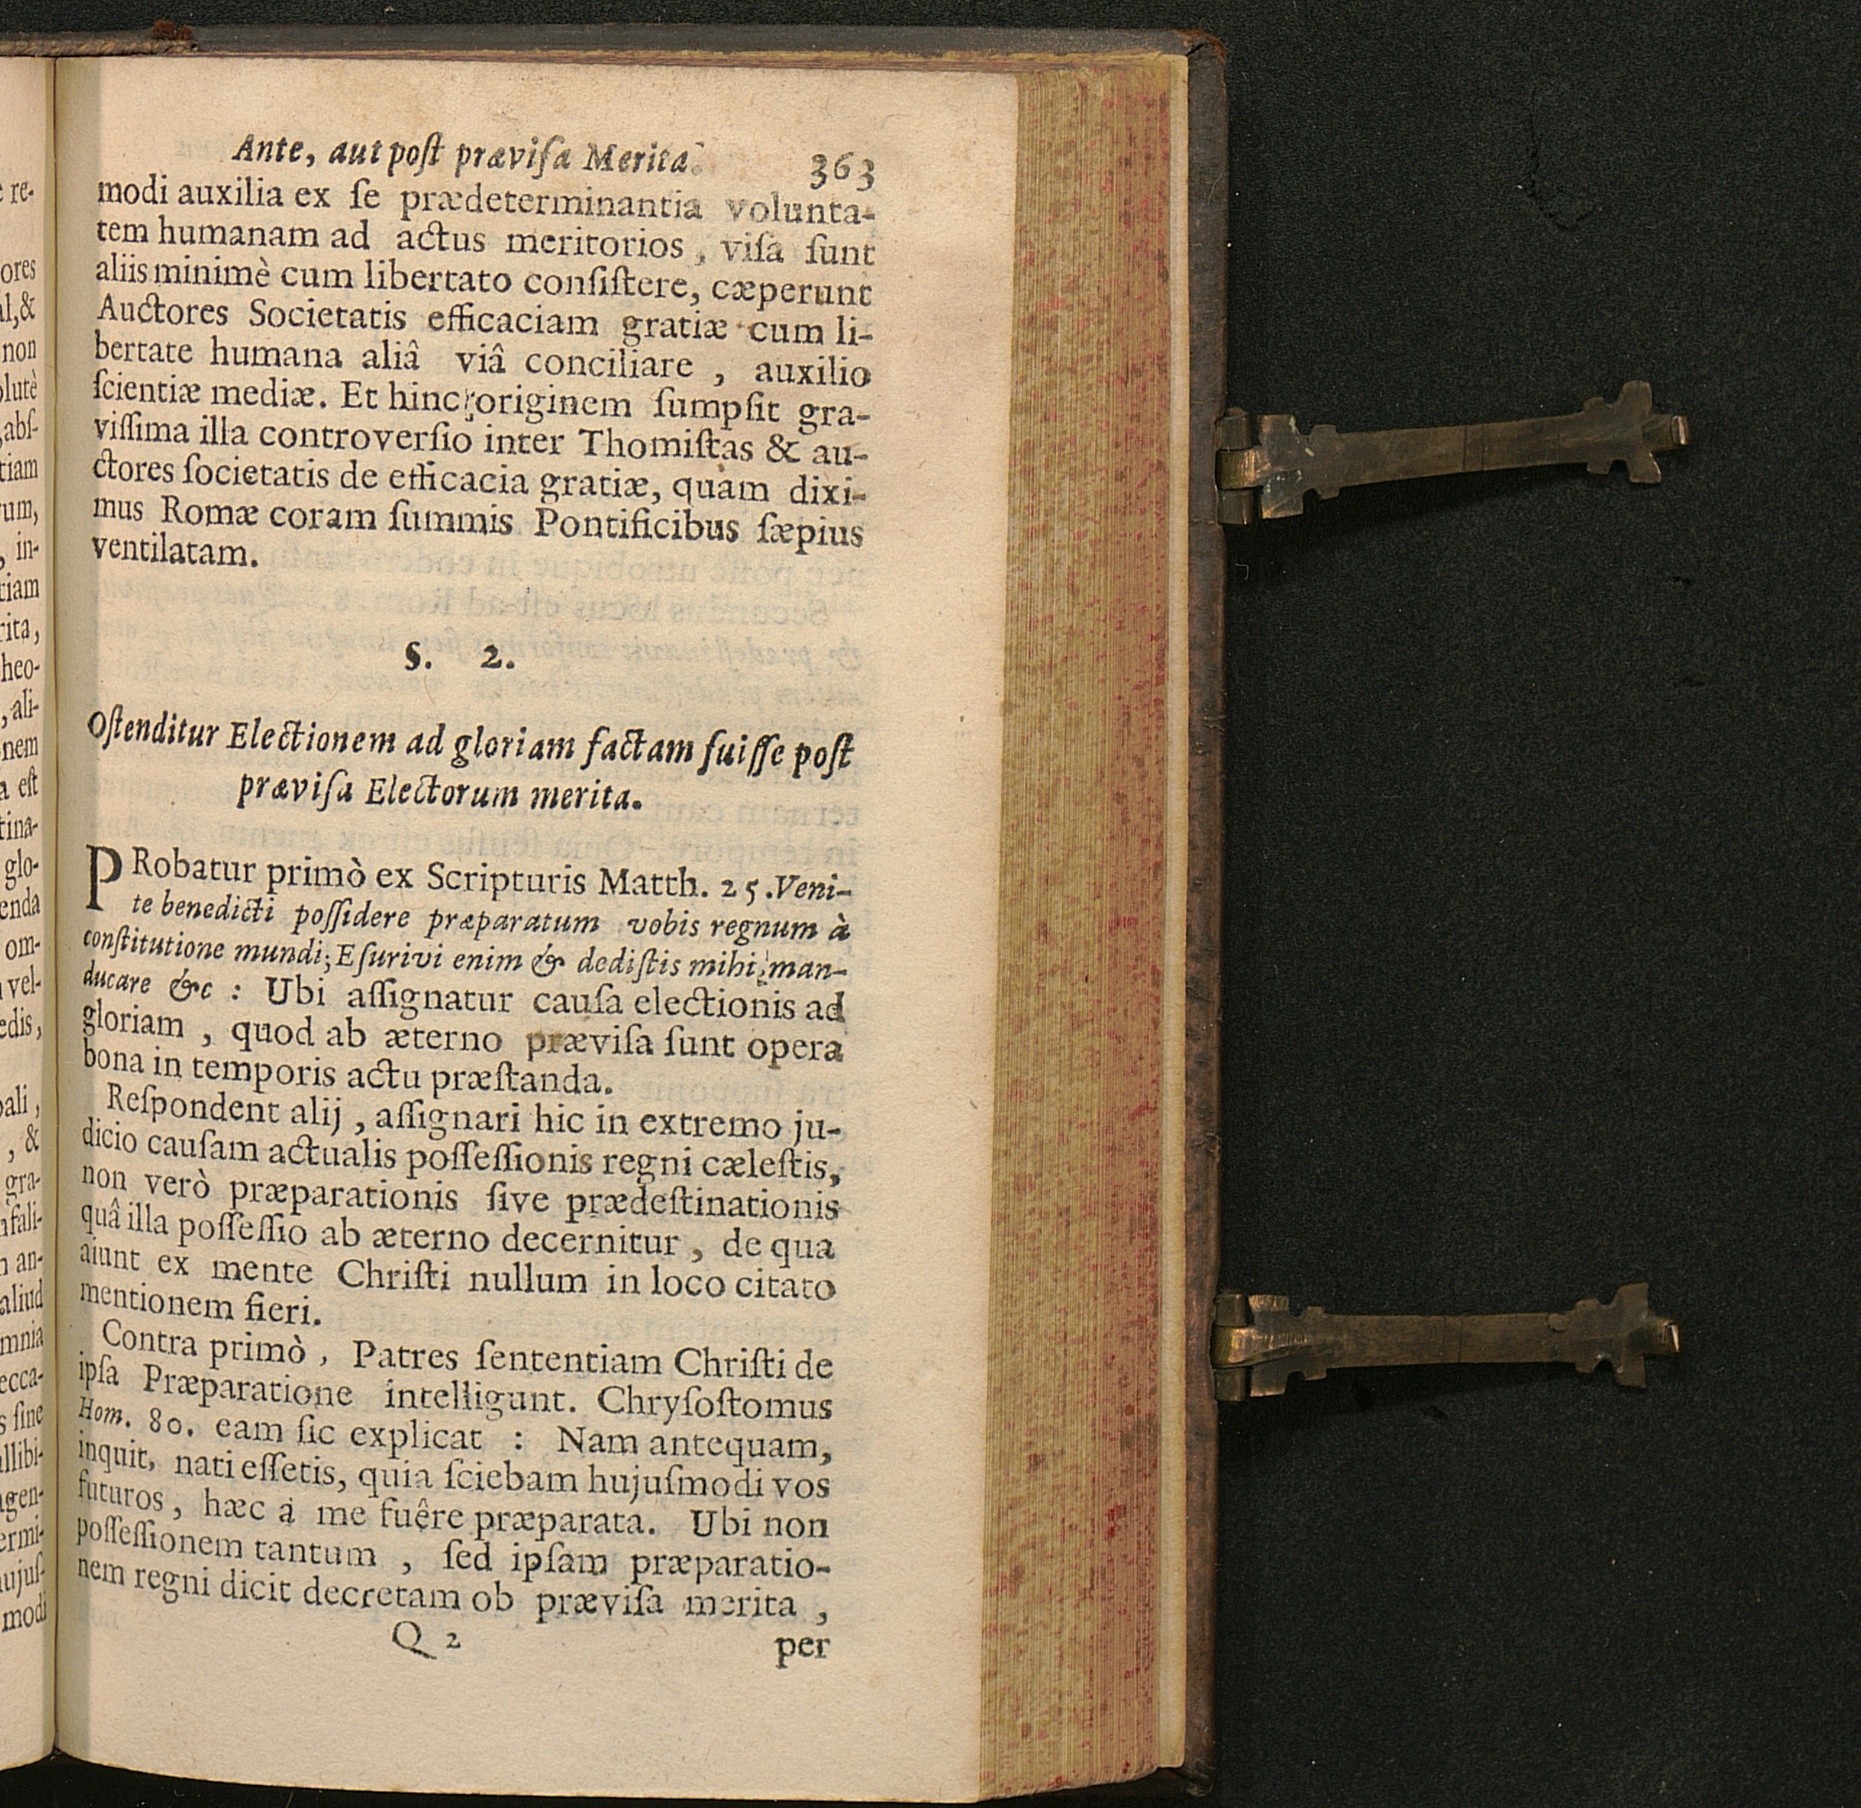 Ante, aut poſt præviſa Merita. 363
modi auxilia ex ſe prædeterminantia volunta-
tem humanam ad actus meritorios, viſa ſunt
aliis minimè cum libertato conſiſtere, cæperunt
Auctores Societatis efficaciam gratiæ cum li-
bertate humana aliâ viâ conciliare, auxilio
ſcientiæ mediæ. Et hinc originem ſumpſit gra-
viſſima illa controverſio inter Thomiſtas & au-
ctores ſocietatis de efficacia gratiæ, quam dixi-
mus Romæ coram ſummis Pontificibus ſæpius
ventilatam.
§. 2.
Oſtenditur Electionem ad gloriam factam fuiſſe poſt
præviſa Electorum merita.
PRobatur primò ex Scripturis Matth. 25. Veni-
te benedicti poſſidere præparatum vobis regnum à
conſtitutione mundi; Eſurivi enim & dediſtis mihi man-
ducare &c : Ubi aſſignatur cauſa electionis ad
gloriam, quod ab æterno præviſa ſunt opera
bona in temporis actu præſtanda.
Reſpondent alij, aſſignari hic in extremo ju-
dicio cauſam actualis poſſeſſionis regni cæleſtis,
non verò præparationis ſive prædeſtinationis
quâ illa poſſeſſio ab æterno decernitur, de qua
aiunt ex mente Chriſti nullum in loco citato
mentionem fieri.
Contra primò, Patres ſententiam Chriſti de
ipſa Præparatione intelligunt. Chryſoſtomus
Hom. 80. eam ſic explicat : Nam antequam,
inquit, nati eſſetis, quia ſciebam hujuſmodi vos
futuros, hæc a me fuêre præparata. Ubi non
poſſeſſionem tantum, ſed ipſam præparatio-
nem regni dicit decretam ob præviſa merita,
Q 2 per